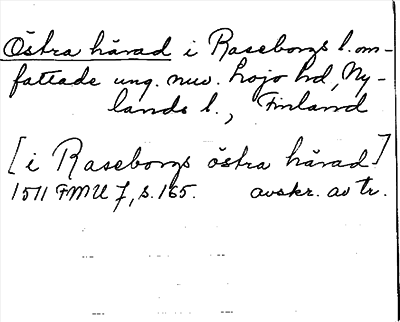 Östra härad i Raseborgs l. om-
fattade ung. nuv. Lojo hd, Ny-
lands l., Finland
[i Raseborgs östra härad]
1511 FMU 7, s. 165. avskr. av tr.